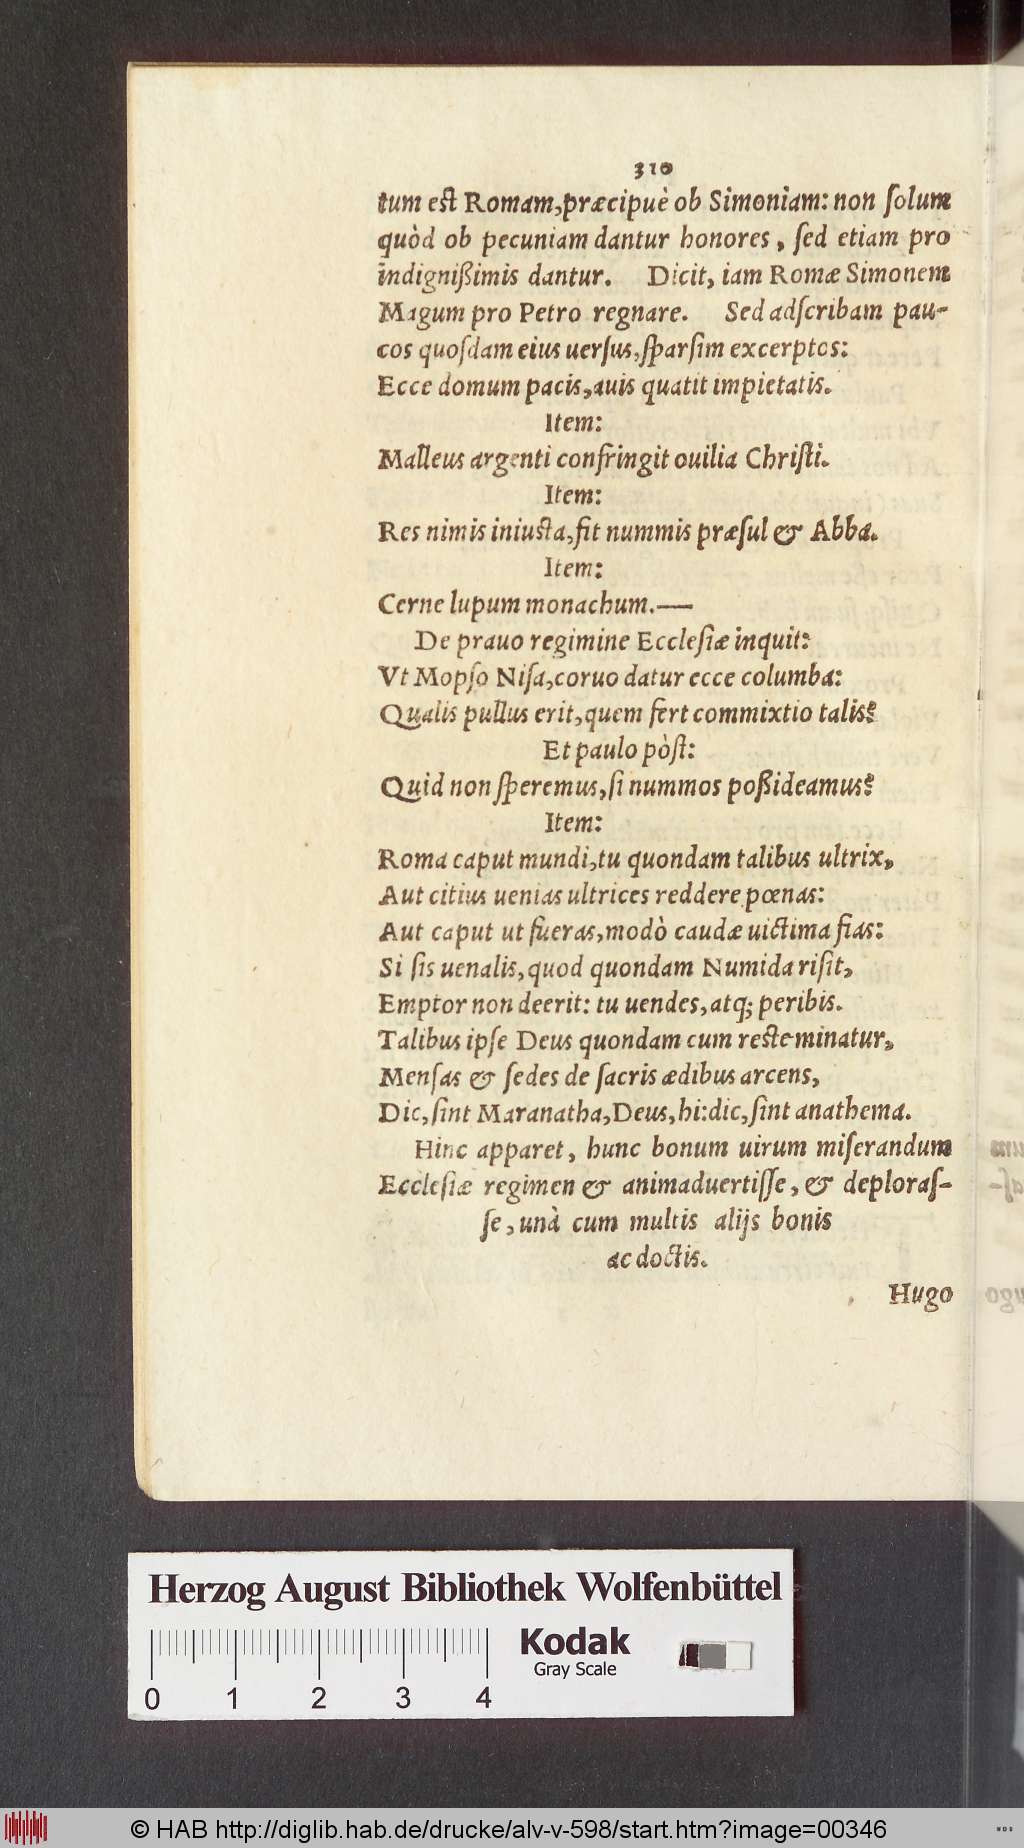 310
tum est Romam, præcipuè ob Simoniam: non ſolum
quòd ob pecuniam dantur honores, ſed etiam pro
indignißimis dantur. Dicit, iam Romæ Simonem
Magum pro Petro regnare. Sed adſcribam pau-
cos quoſdam eius uerſus, ſparſim excerptos:
Ecce domum pacis, auis quatit impietatis.
Item:
Malleus argenti confringit ouilia Chriſti.
Item:
Res nimis iniusta, fit nummis præſul & Abba.
Item:
Cerne lupum monachum.—
De prauo regimine Eccleſiæ inquit:
Vt Mopſo Niſa, coruo datur ecce columba:
Qualis pullus erit, quem fert commixtio talis?
Et paulo pòſt:
Quid non ſperemus, ſi nummos poßideamus?
Item:
Roma caput mundi, tu quondam talibus ultrix,
Aut citius uenias ultrices reddere pœnas:
Aut caput ut fueras, modò caudæ uictima fias:
Si ſis uenalis, quod quondam Numida riſit,
Emptor non deerit: tu uendes, atq; peribis.
Talibus ipſe Deus quondam cum reste minatur,
Menſas & ſedes de ſacris ædibus arcens,
Dic, ſint Maranatha, Deus, hi: dic, ſint anathema.
Hinc apparet, hunc bonum uirum miſerandum
Eccleſiæ regimen & animaduertiſſe, & deploraſ-
ſe, unà cum multis alijs bonis
ac doctis.
Hugo
Herzog August Bibliothek Wolfenbüttel
Kodak
Gray Scale
0 1 2 3 4
© HAB http://diglib.hab.de/drucke/alv-v-598/start.htm?image=00346